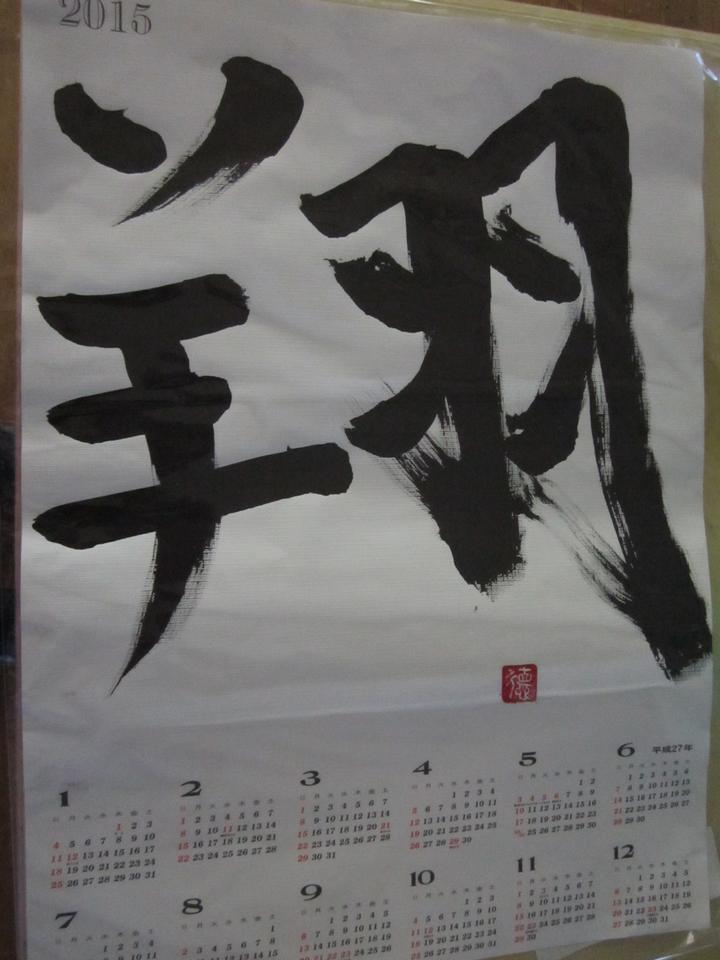 2015
翔
德
平成27年
1
日 月 火 水 木 金 土
1 2 3
4 5 6 7 8 9 10
11 12 13 14 15 16 17
18 19 20 21 22 23 24
25 26 27 28 29 30 31
2
日 月 火 水 木 金 土
1 2 3 4 5 6 7
8 9 10 11 12 13 14
15 16 17 18 19 20 21
22 23 24 25 26 27 28
3
日 月 火 水 木 金 土
1 2 3 4 5 6 7
8 9 10 11 12 13 14
15 16 17 18 19 20 21
22 23 24 25 26 27 28
29 30 31
4
日 月 火 水 木 金 土
1 2 3 4
5 6 7 8 9 10 11
12 13 14 15 16 17 18
19 20 21 22 23 24 25
26 27 28 29 30
5
日 月 火 水 木 金 土
1 2
3 4 5 6 7 8 9
10 11 12 13 14 15 16
17 18 19 20 21 22 23
24/31 25 26 27 28 29 30
6
日 月 火 水 木 金 土
1 2 3 4 5 6
7 8 9 10 11 12 13
14 15 16 17 18 19 20
21 22 23 24 25 26 27
28 29 30
7
日 月 火 水 木 金 土
1 2 3 4
8
日 月 火 水 木 金 土
1
2 3 4 5 6 7 8
9
日 月 火 水 木 金 土
1 2 3 4 5
6 7 8 9 10 11 12
13 14 15 16 17 18 19
10
日 月 火 水 木 金 土
1 2 3
4 5 6 7 8 9 10
11 12 13 14 15 16 17
18 19 20 21 22 23 24
11
日 月 火 水 木 金 土
1 2 3 4 5 6 7
8 9 10 11 12 13 14
15 16 17 18 19 20 21
22 23 24 25 26 27 28
29 30
12
日 月 火 水 木 金 土
1 2 3 4 5
6 7 8 9 10 11 12
13 14 15 16 17 18 19
20 21 22 23 24 25 26
27 28 29 30 31